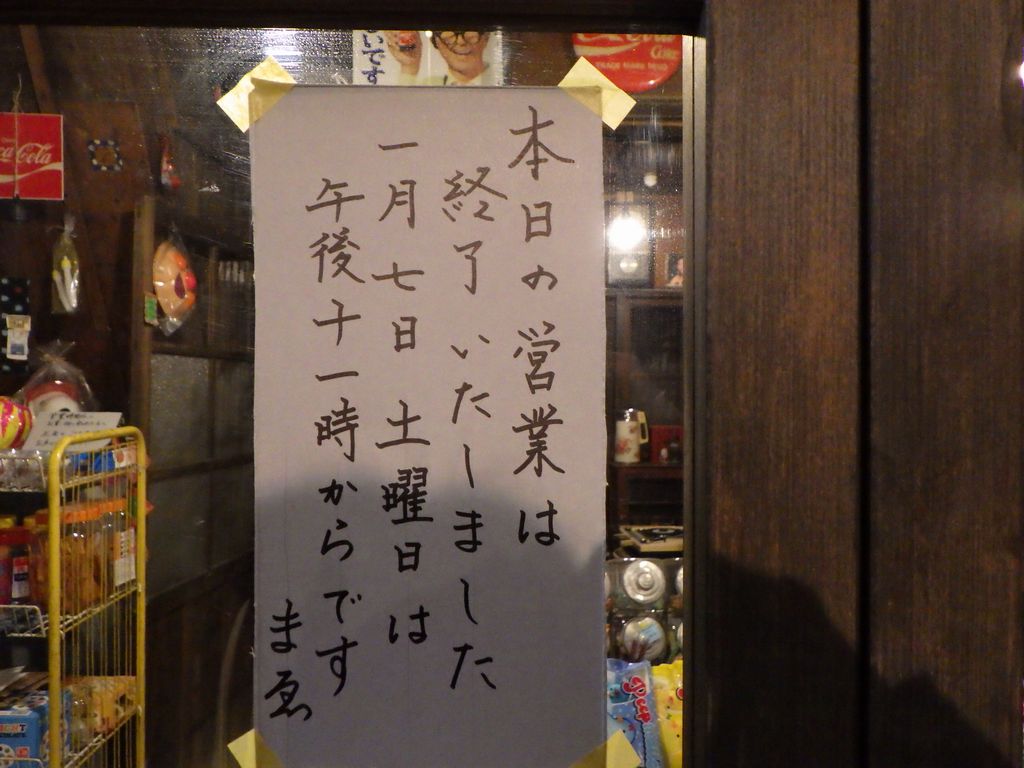 本日の営業は
終了いたしました
一月七日土曜日は
午後十一時からです
まゑ
いです
Coca-Cola
Coke
TRADE MARK REGD